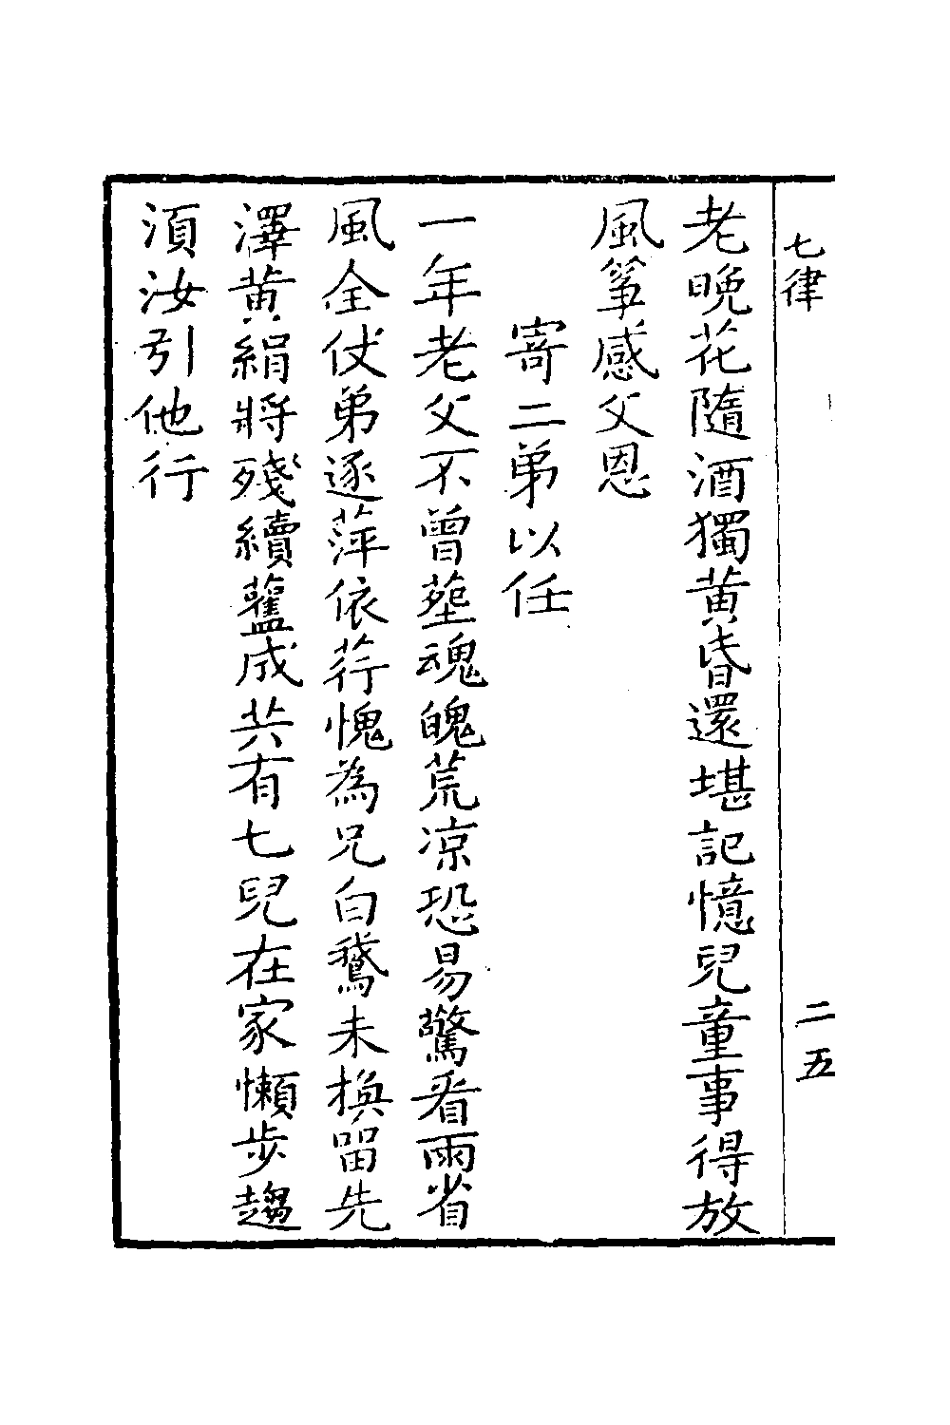 七律
二五
老晚花隨酒獨黄昏還堪記憶兒童事得放
風箏感父恩
寄二弟以任
一年老父不曾塟魂魄荒凉恐易驚看雨省
風全仗弟逐萍依荇愧為兄白鵞未換留先
澤黄絹將殘續虀成共有七兒在家懶步趨
湏汝引他行